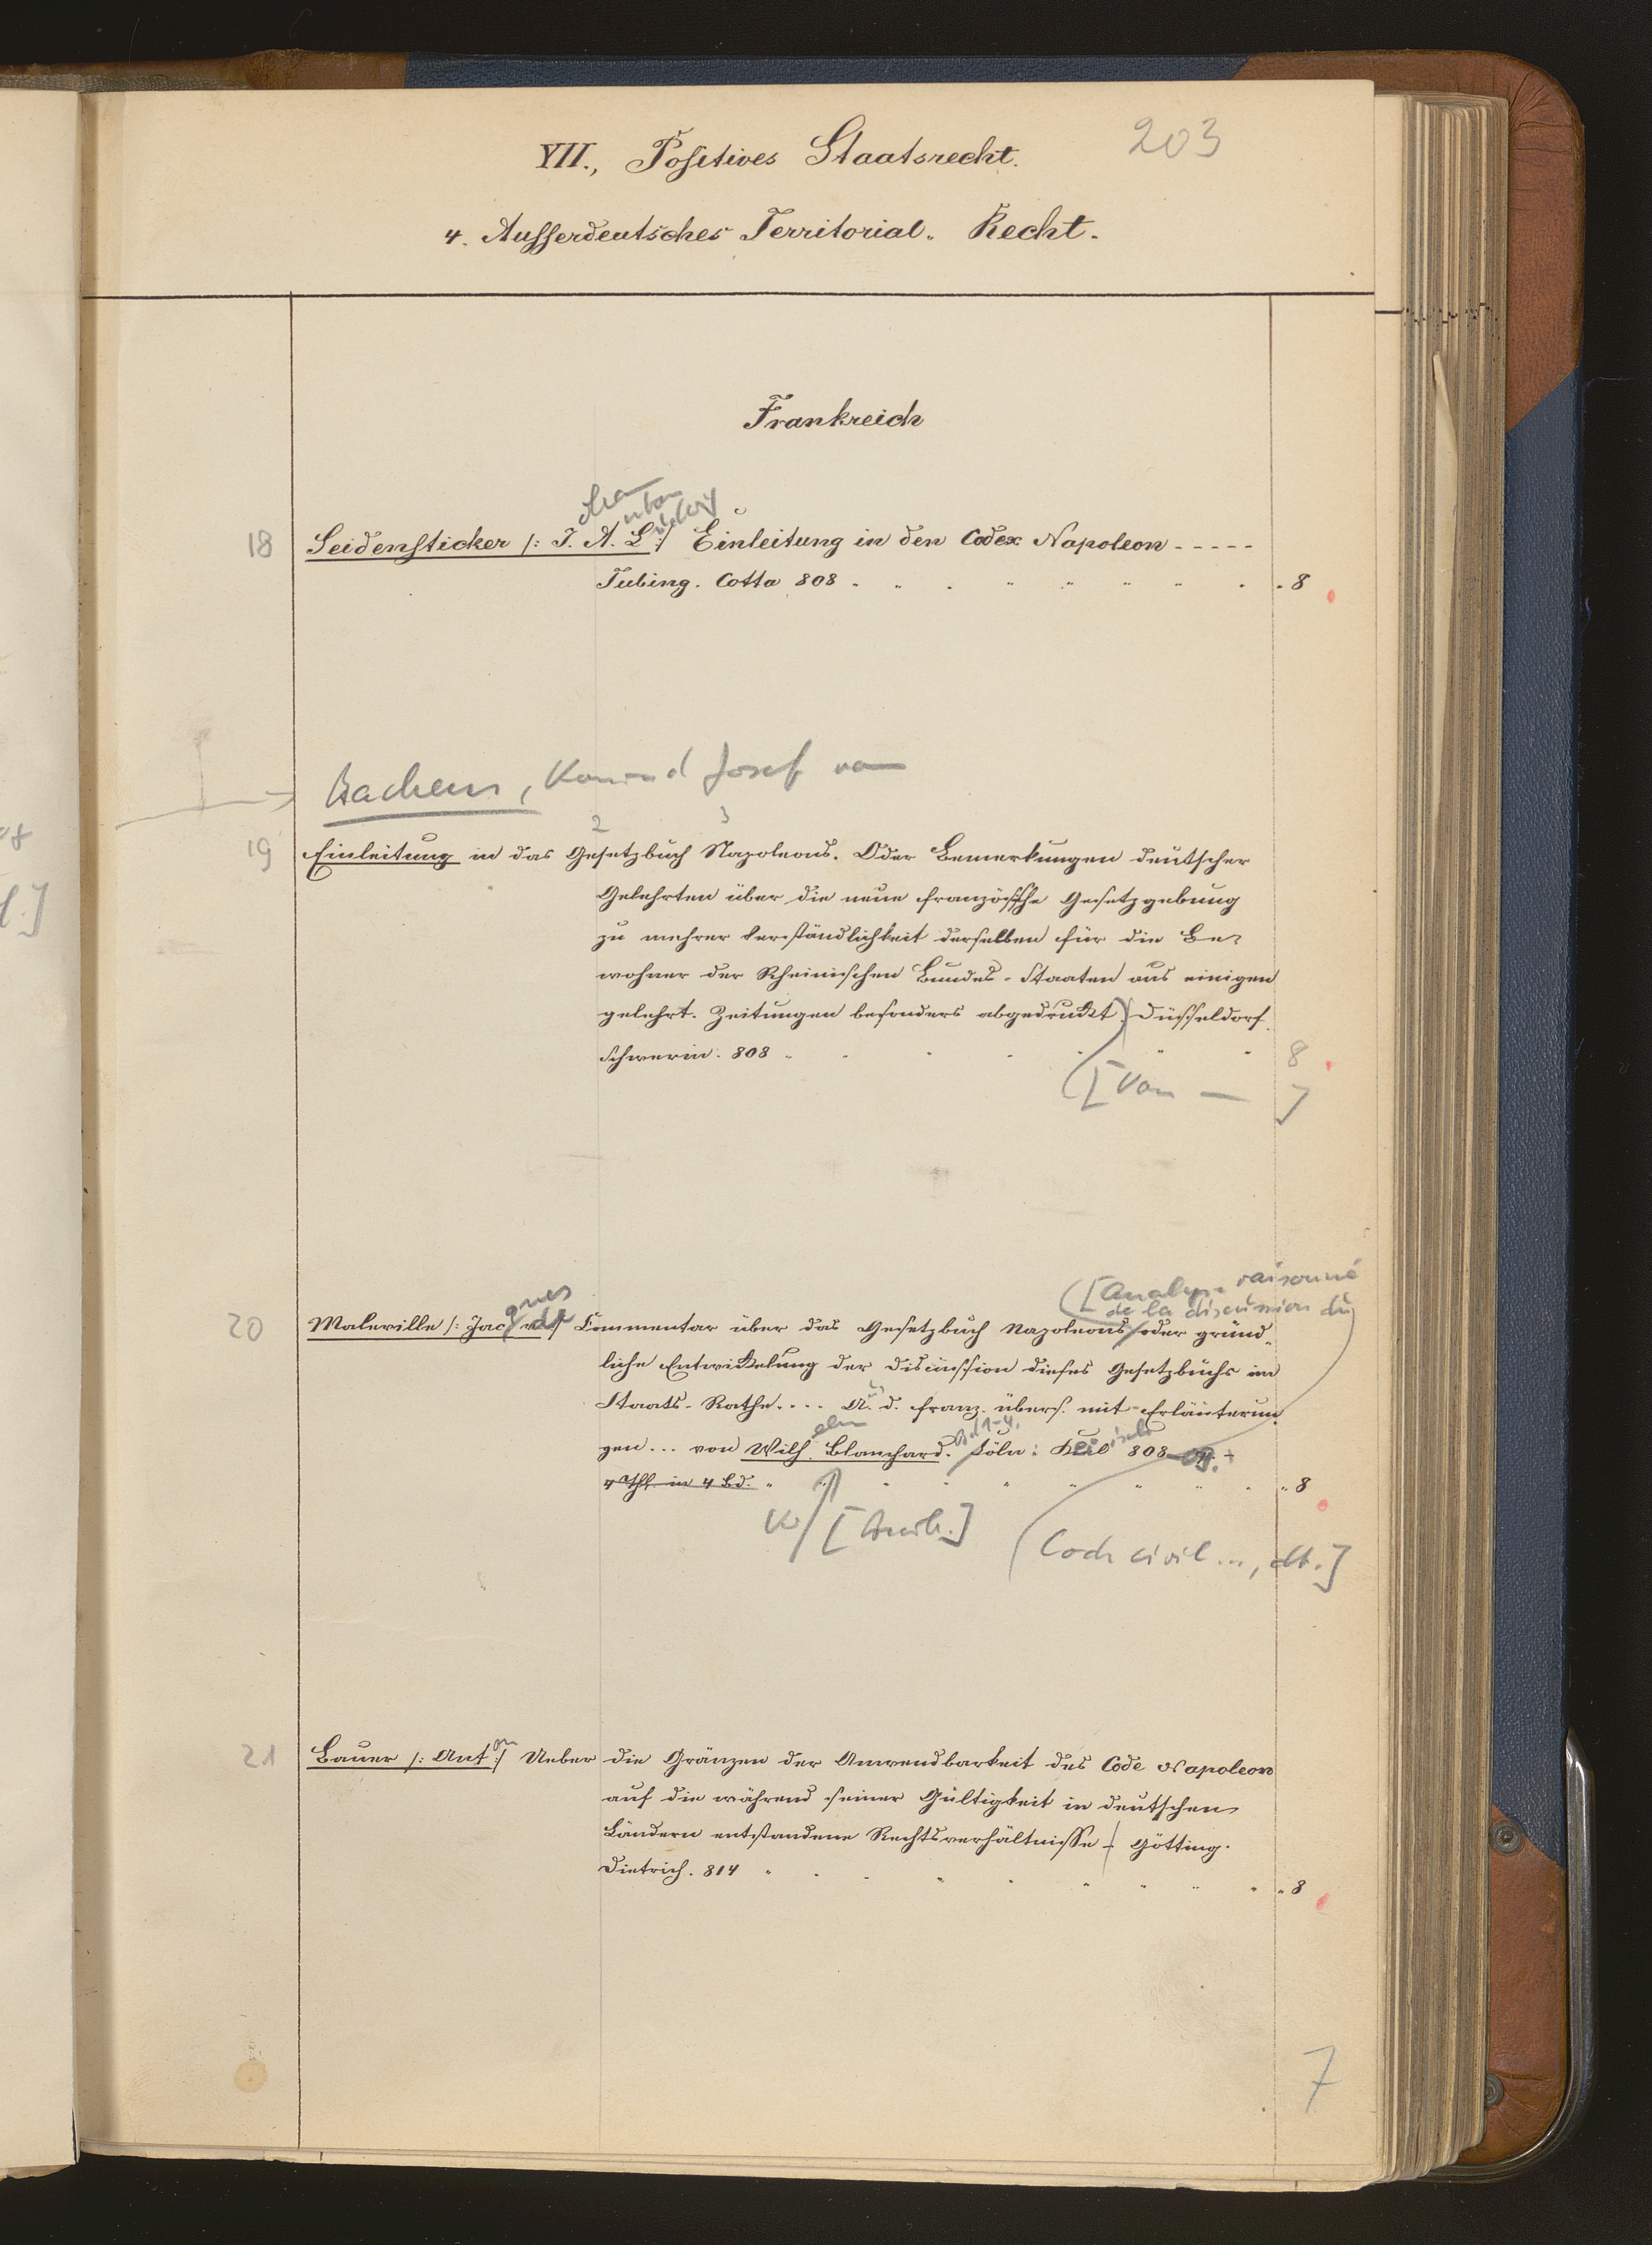 203
VII., Positives Staatsrecht.
4. Ausserdeutsches Territorial-Recht.
Frankreich
18 Seidensticker /: J. A. L :/ Einleitung in den Codex Napoleon - - - - -
Tubing. Cotta 808 8
Bachem, Konrad Josef von
2 3
19 Einleitung in das Gesetzbuch Napoleons. Oder Bemerkungen deutscher
Gelehrten über die neue französische Gesetzgebung
zu mehrer Verständlichkeit derselben für die Be-
wohner der Rheinischen Bundes-Staaten aus einigen
gelehrt. Zeitungen besonders abgedruckt. Düsseldorf.
Schwerin. 808 8
[Von — ]
[Analyse raisonné
de la discussion du
20 Maleville /: Jacques de :/ Commentar über das Gesetzbuch Napoleons oder gründ-
liche Entwickelung der Discussion dieses Gesetzbuchs im
Staats-Rathe.... A. d. franz. übers. mit Erläuterun
gen... von Wilh. Blanchard. Bd 1-4. Köln: Keil 808-09.
4 Thl. in 4 Bd. 8
Code civil ..., dt.]
21 Bauer /: Anton :/ Ueber die Gränzen der Anwendbarkeit des Code Napoleon
auf die während seiner Gültigkeit in deutschen
Ländern entstandene Rechtsverhältnisse - Götting.
Dietrich. 814 8
7